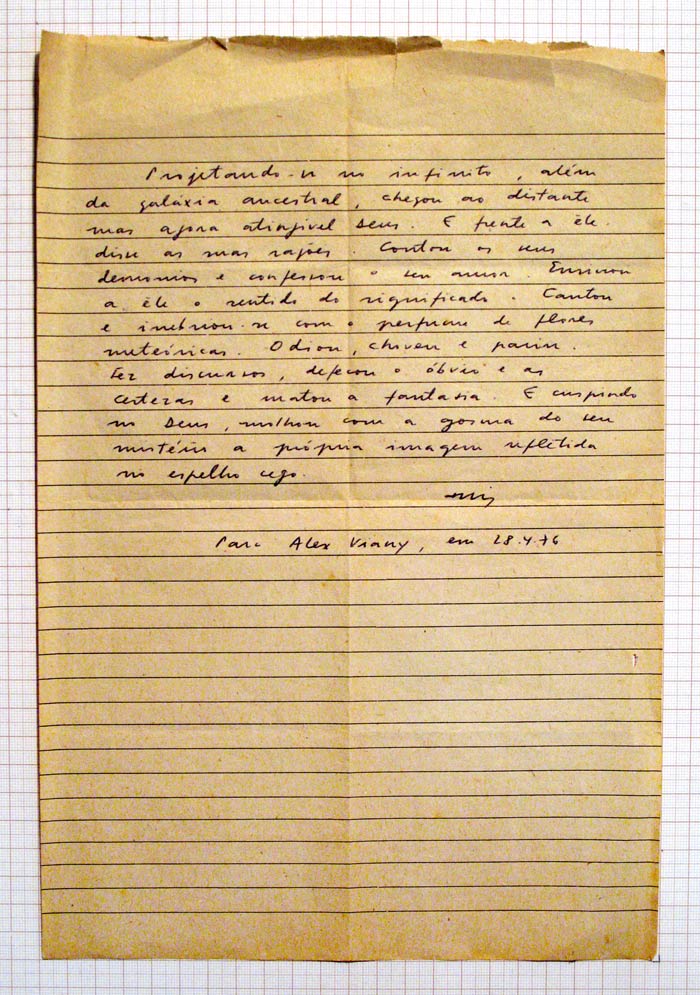 Projetando-se no infinito, além
da galáxia ancestral, chegou ao distante
mas agora atingível Deus. E frente a êle
disse as suas razões. Contou os seus
demonios e confessou o seu amor. Ensinou
a êle o sentido do significado. Cantou
e inebriou-se com o perfume de flores
meteóricas. Odiou, chorou e pariu.
Fez discursos, defecou o óbvio e as
certezas e matou a fantasia. E cuspindo
no Deus, melhou com a gosma do seu
mistério a própria imagem refletida
no espelho cego.
Para Alex Viany, em 28.4.76